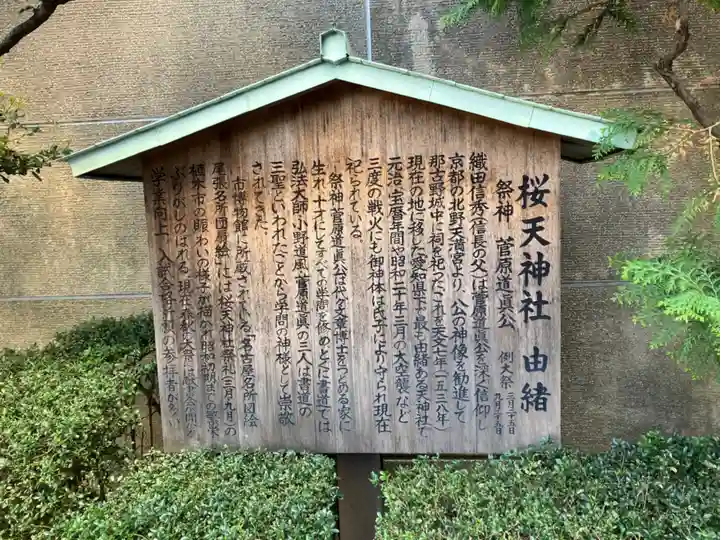 桜天神社 由緒
祭神 菅原道真公
例大祭 三月二十五日
九月二十五日
織田信秀(信長の父)は菅原道真公を深く信仰し
京都の北野天満宮より、公の神像を勧進して
那古野城中に祠を祀ったこれを天文七年(一五三八年)
現在の地に移した「愛知県下で最も由緒ある天神社で
元治・宝暦年間や昭和二十年三月の大空襲など
三度の戦火にも御神体は氏子により守られ現在
祀られている。
祭神・菅原道真公は代々文章博士をつとめる家に
生れ、十才にしてすべての学問を修めとくに書道では
弘法大師・小野道風・菅原道真の三人は書道の
三聖といわれたことから学問の神様として崇敬
されてきた。
市博物館に所蔵されている「名古屋名所団絵
尾張名所団扇絵」には桜天神社祭礼(三月・九月)の
植木市の賑わいの様子が描かれ昭和初期までの繁栄
ぶりがしのばれる 現在春秋の大祭には
学業向上、入試合格祈願の参拝者が多い